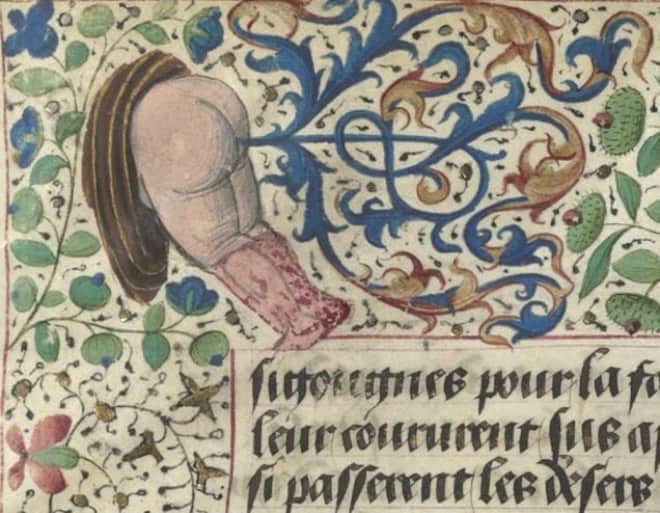 sigongnes pour la fa
leur coururent sus a
si passerent les desers